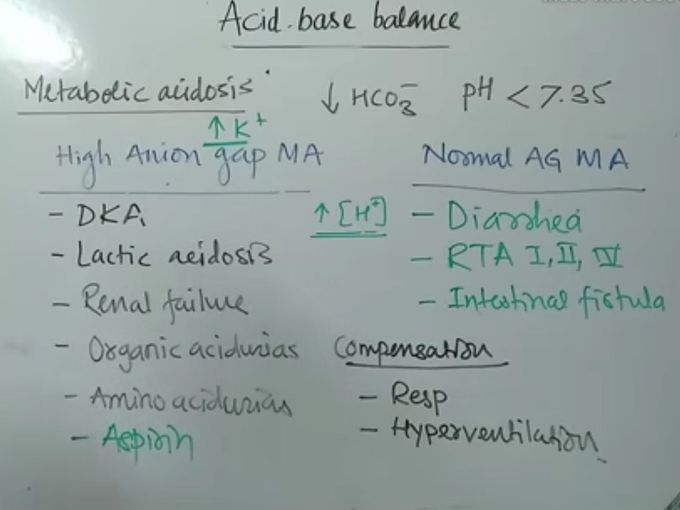 Acid-base balance
Metabolic acidosis ↓ HCO3⁻ pH < 7.35
↑ K⁺
High Anion gap MA
- DKA
- Lactic acidosis
- Renal failure
- Organic acidurias
- Amino acidurias
- Aspirin
↑ [H⁺]
Normal AG MA
- Diarrhea
- RTA I, II, IV
- Intestinal fistula
Compensation
- Resp
- Hyperventilation